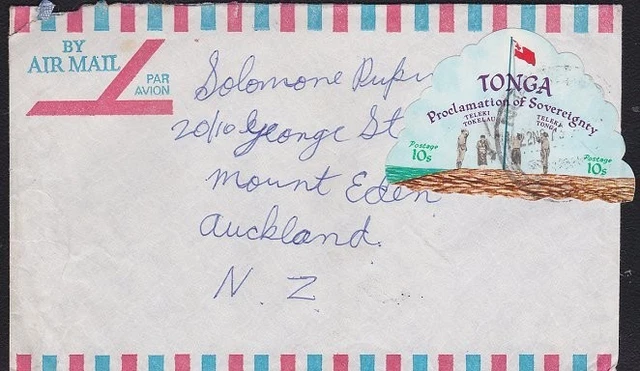 BY
AIR MAIL
PAR
AVION
Solomone
20/10 George St
Mount Eden
Auckland.
N. Z
TONGA
Proclamation of Sovereignty
TELEKI
TOKELAU
TELEKI
TONGA
Postage
10s
Postage
10s